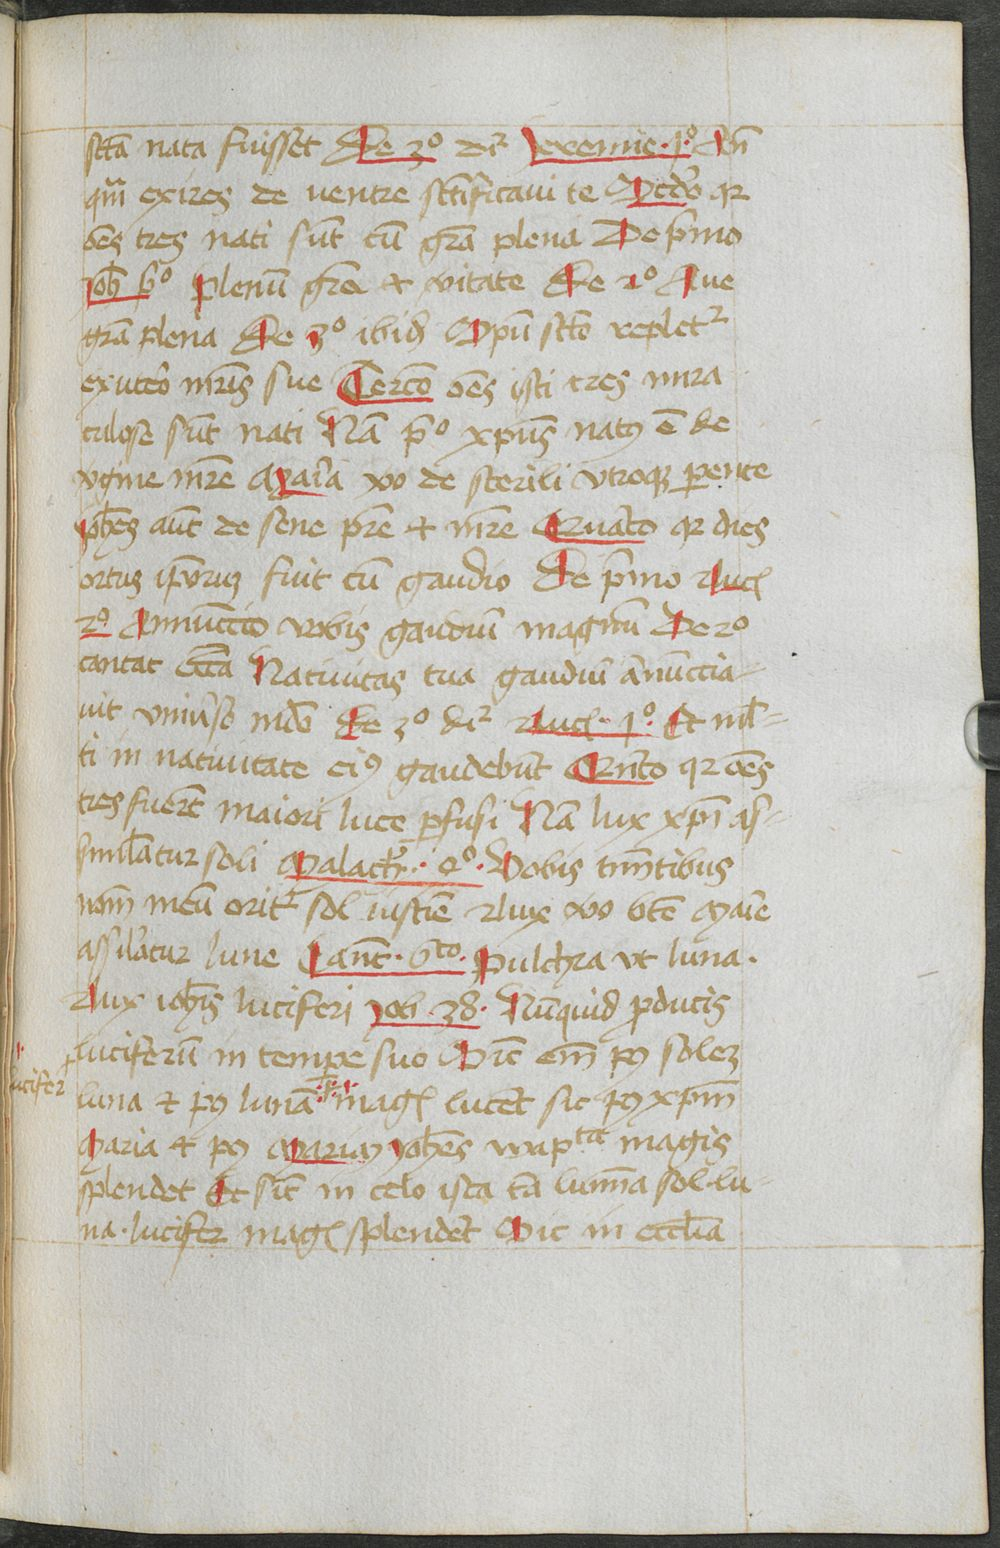 sctā nata fuisset De 3º dr̄ Jeremie · 1º · Añ
qm̄ exires de ventre sctificavi te Scdo qr
oēs tres nati sūt cū grā plena De pͥmo
joh pº Plenū grā et vitate De 2º Ave
grā plena De 3º ibid Spū scto repletꝛ
ex utero mr̄is sue Tercio oēs isti tres mira
culose sūt nati Nā pº xp̄us natꝯ ē de
vgine mr̄e Maria vo de sterili utroqꝫ parente
Johēs aūt de sene pr̄e et mr̄e Quarto qr dies
ortus ipōrum fuit cū gaudio De pͥmo Luc
2º Annūctio vobis gaudiū magnū De 2º
cantat eccā Nativitas tua gaudiū annūctia-
vit uniṽso mūdo De 3º dr̄ Luc · 1º · Et ml̄=
ti in nativitate eiꝯ gaudebūt Qnto qr oēs
tres fuerūt maiori luce pfusi Nā lux xp̄i as-
similatur soli Malach · 4º · Vobis timētibus
nomē meū orietꝛ sol iusticie Lux vo bte Marie
assilatur lune Cant · 6to · Pulchra ut luna ·
Lux iohīs luciferi job · 38 · Nūquid pducis
luciferū in tempe suo Sic em̄ pꝯ solem
lucifer
luna et pꝯ lunā magꝭ lucet sic pꝯ xp̄m
Maria et pꝯ Mariam Johēs magis
splendet Et sic in celo ista tria lumīa sol · lu-
na · lucifer magꝭ splendēt Sic in ecclia